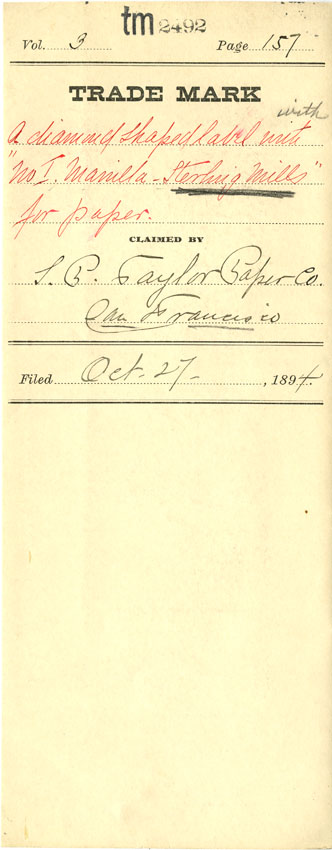 tm 2492
Vol. 3 Page 157
TRADE MARK
with
A diamond shaped label with
"No I. Manilla - Sterling Mills"
for paper.
CLAIMED BY
S. P. Taylor Paper Co.
San Francisco
Filed Oct. 27 - , 1894.